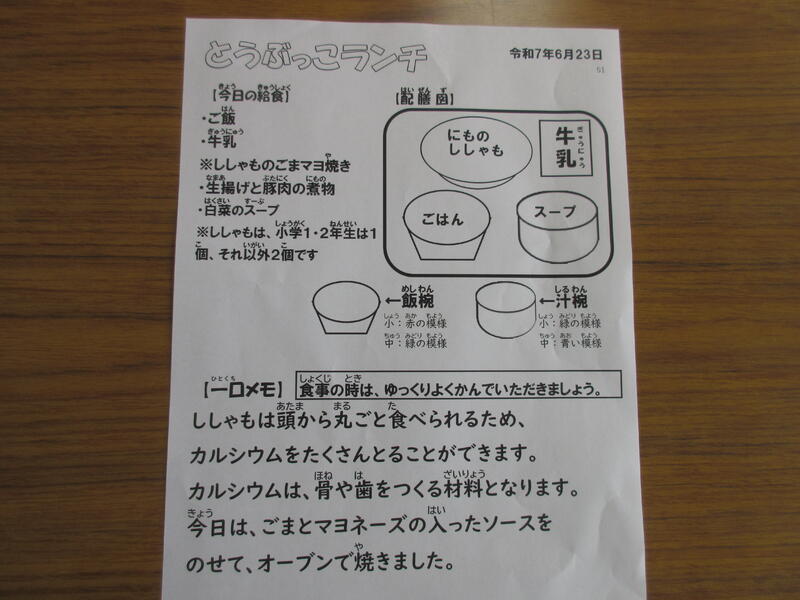 とうぶっこランチ
令和7年6月23日
51
【今日の給食】
・ご飯
・牛乳
※ししゃものごまマヨ焼き
・生揚げと豚肉の煮物
・白菜のスープ
※ししゃもは、小学1・2年生は1
個、それ以外2個です
【配膳図】
にもの
ししゃも
牛乳
ごはん
スープ
←飯椀
小：赤の模様
中：緑の模様
←汁椀
小：緑の模様
中：青い模様
【一口メモ】
食事の時は、ゆっくりよくかんでいただきましょう。
ししゃもは頭から丸ごと食べられるため、
カルシウムをたくさんとることができます。
カルシウムは、骨や歯をつくる材料となります。
今日は、ごまとマヨネーズの入ったソースを
のせて、オーブンで焼きました。